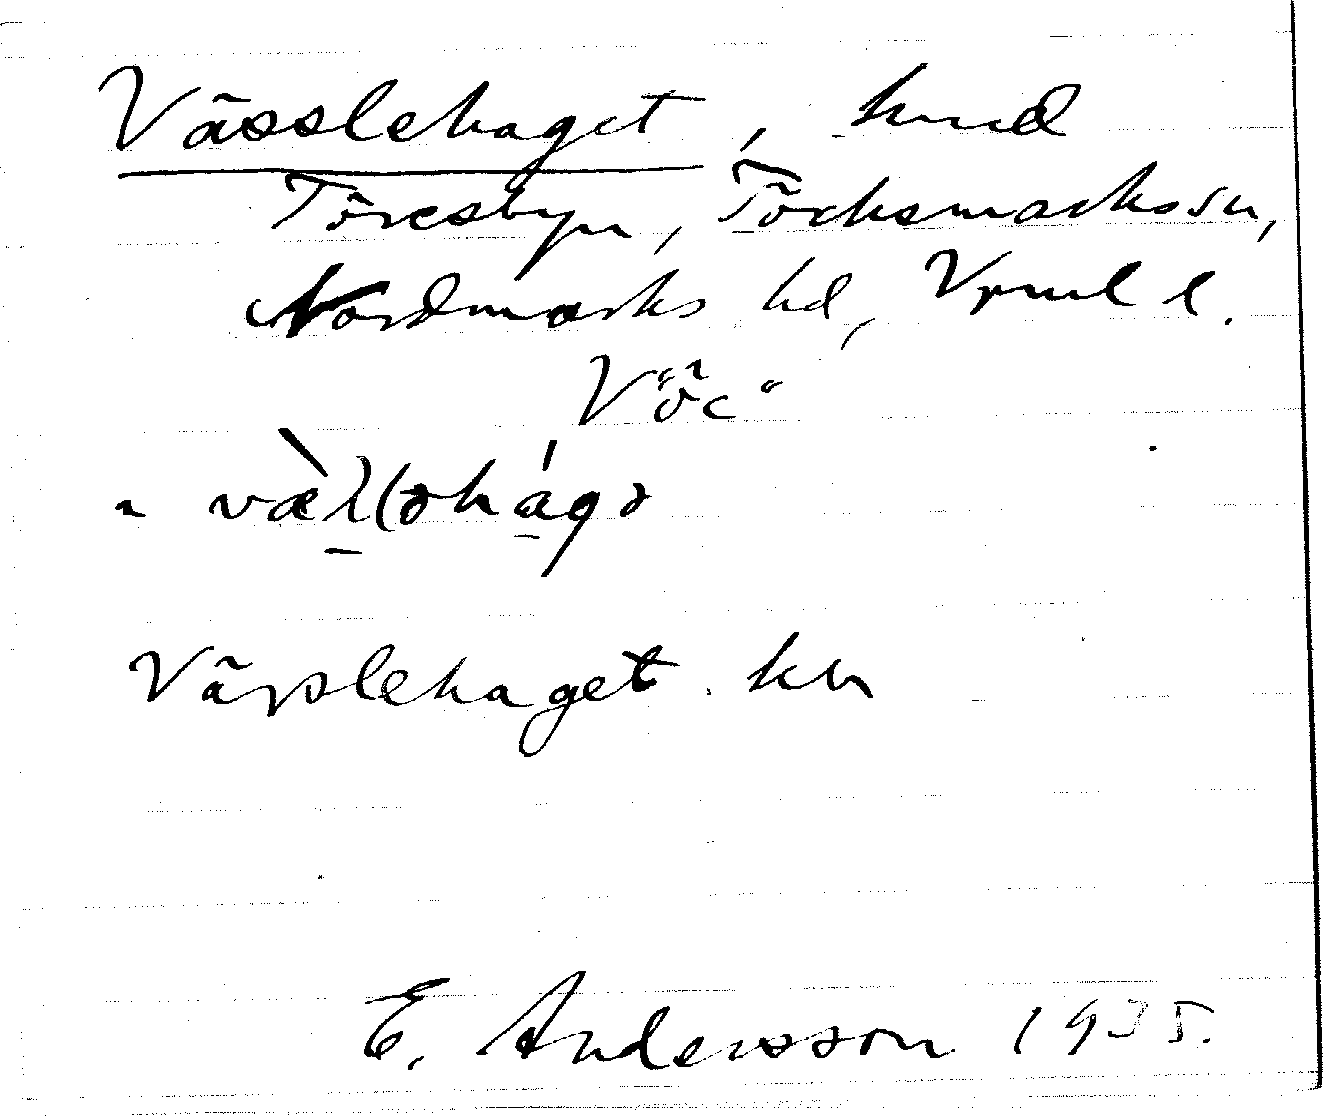 Vässlehaget, hmd
Töresbyn, Töcksmarks sn,
Nordmarks hd, Vrml l.
Vässlehaget. kn
E. Andersson 1935.